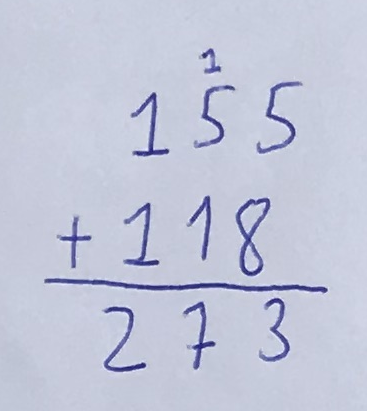 1
155
+ 118
273